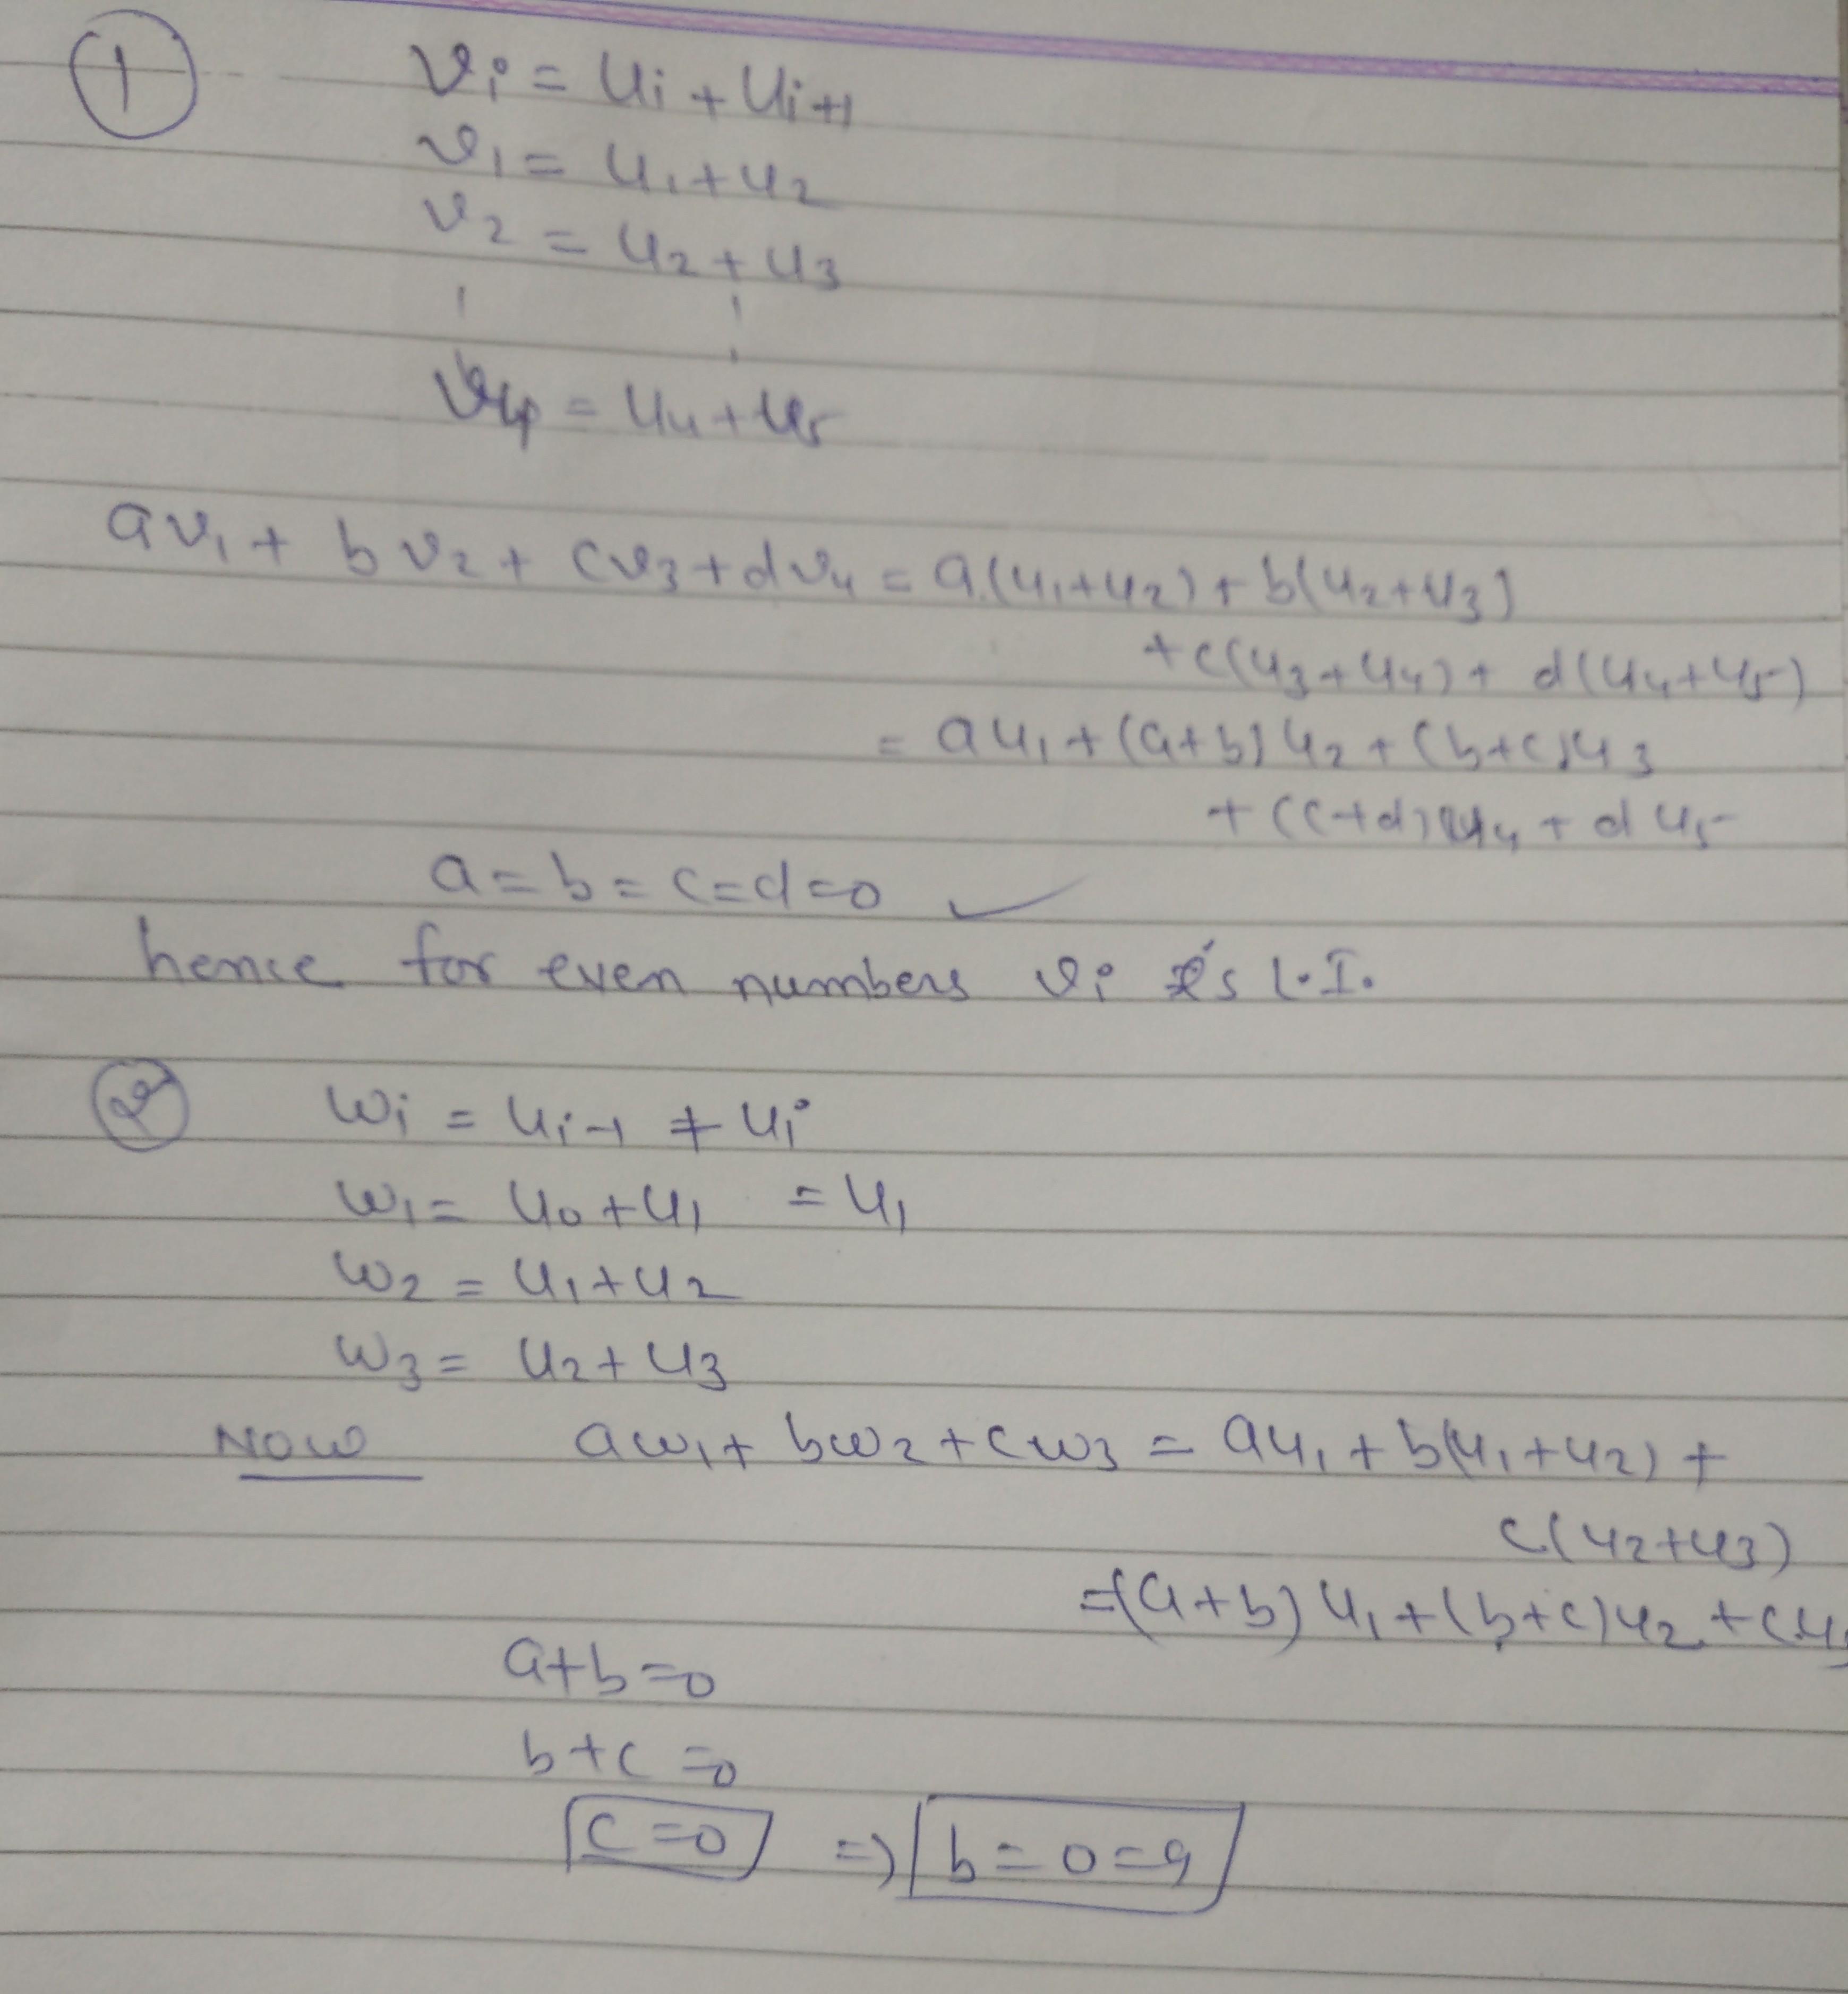 1
vi = ui + ui+1
v1 = u1 + u2
v2 = u2 + u3
v4 = u4 + u5
av1 + bv2 + cv3 + dv4 = a(u1+u2) + b(u2+u3)
+ c(u3+u4) + d(u4+u5)
= au1 + (a+b)u2 + (b+c)u3
+ (c+d)u4 + du5
a = b = c = d = 0 ✓
hence for even numbers vi is L.I.
2
wi = ui-1 + ui
w1 = u0 + u1 = u1
w2 = u1 + u2
w3 = u2 + u3
NOW aw1 + bw2 + cw3 = au1 + b(u1+u2) +
c(u2+u3)
= (a+b)u1 + (b+c)u2 + cu3
a+b=0
b+c=0
c=0 => b=0=a